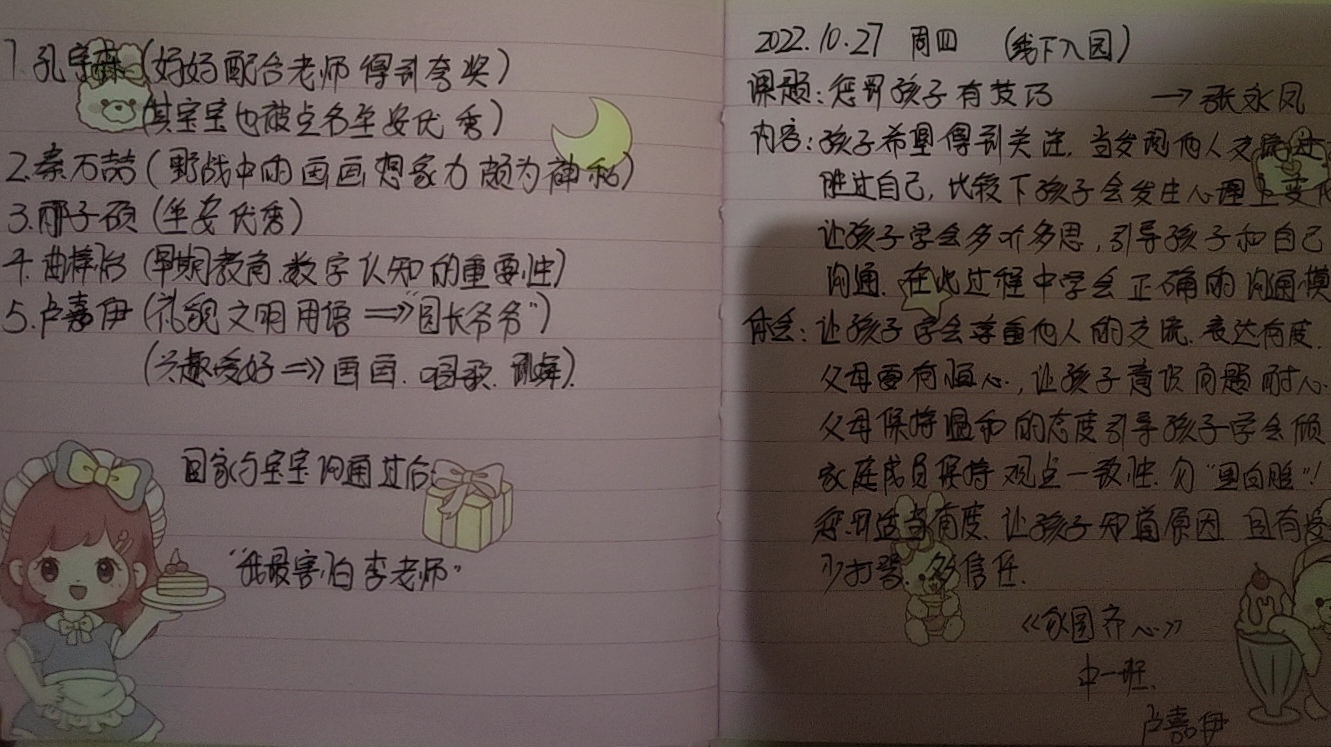 1.孔宇霖(好好配合老师得到夸奖)
(其宝宝也被点名坐姿优秀)
2.秦万喆(野战中的画画想象力颇为神秘)
3.邢子硕(坐姿优秀)
4.曲 (早期教育.数字认知的重要性)
5.卢嘉伊(礼貌文明用语⇒"园长爷爷")
(兴趣爱好⇒画画.唱歌.跳舞).
回家与宝宝沟通过后:
"我最害怕李老师"
2022.10.27 周四 (线下入园)
课题:惩罚孩子有技巧 →张永凤
内容:孩子希望得到关注,当发现他人交流
胜过自己,比较下孩子会发生心理上变化
让孩子学会多听多思,引导孩子和自己
沟通.在此过程中学会正确的沟通模
体会:让孩子学会尊重他人的交流.表达有度.
父母要有恒心,让孩子意识问题耐心.
父母保持温和的态度引导孩子学会倾
家庭成员保持观点一致性.勿"黑白脸"!
惩罚适当有度.让孩子知道原因 且有
少打骂.多信任.
《家园齐心》
中一班.
卢嘉伊